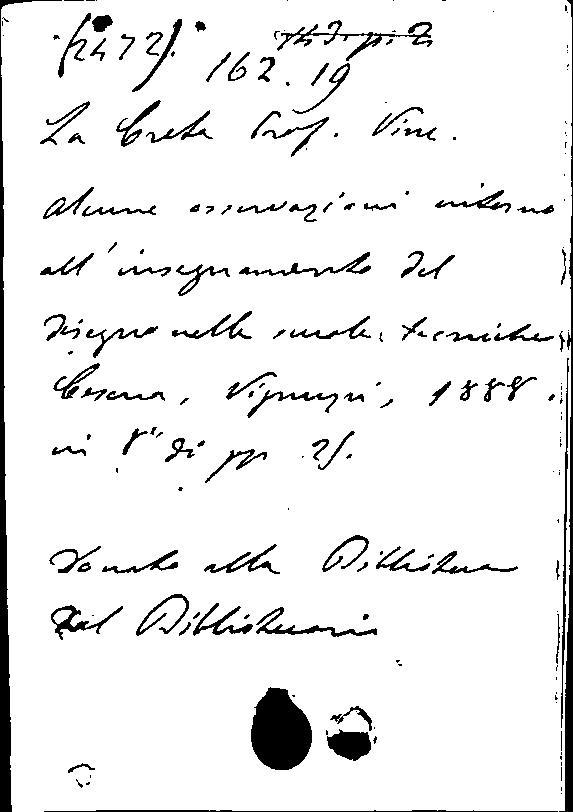 (2472).
162.19
La Creta Prof. Vinc.
Alcune osservazioni intorno
all'insegnamento del
disegno nelle scuole tecniche
Cesena, Vignuzzi, 1888.
in 8° di pp 25.
Donato alla Biblioteca
Dal Bibliotecario